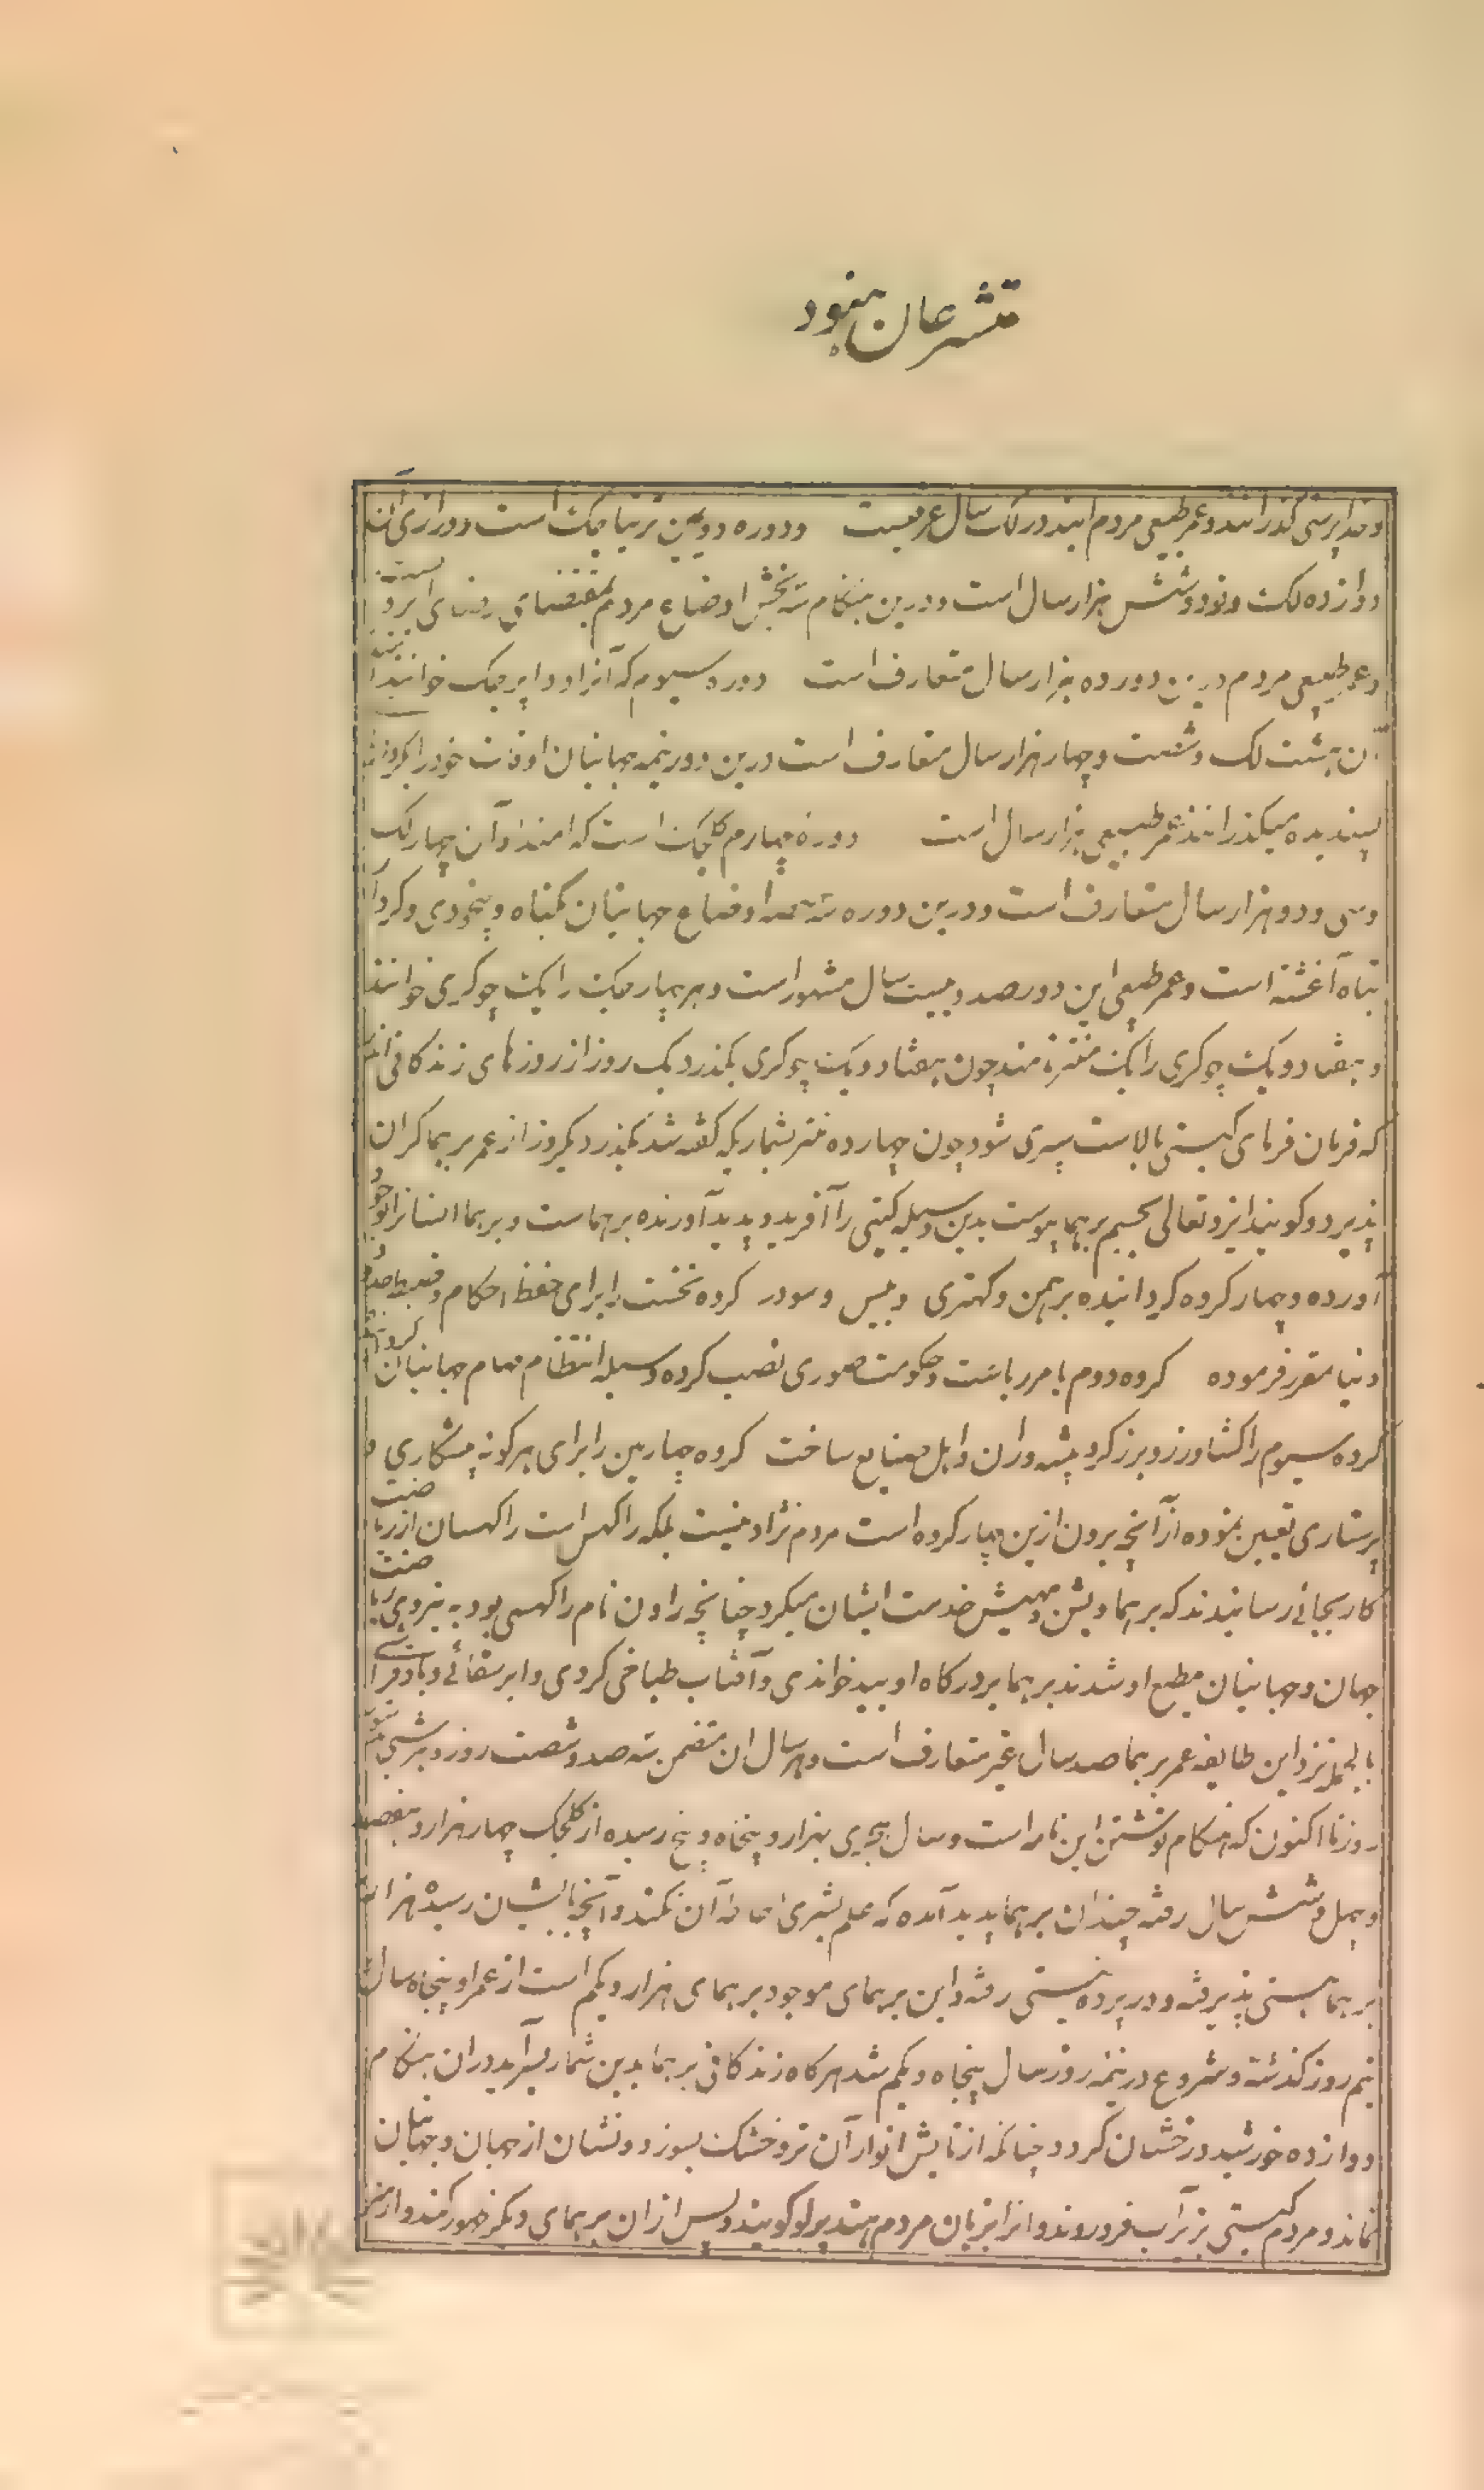 متشرعان هنود
و خدا پرستی گذرانند و عمر طبیعی مردم این دور لک سال عرفیست و دوره دومین ترتیا جک است و درازی آن
دوازده لک و نود و شش هزار سال است و درین هنگام سه بخش اوضاع مردم بمقتضای رضای ایزد است
و عمر طبیعی مردم درین دور ده هزار سال متعارف است دوره سیوم که آنرا دواپر جک خوانند امتداد
آن هشت لک و شصت و چهار هزار سال متعارف است درین دور نیمه جهانیان اوقات خود را بکردار
پسندیده میگذرانند عمر طبیعی هزار سال است دوره چهارم کلجک است که امتداد آن چهار لک
و سی و دو هزار سال متعارف است و درین دوره سه حصه اوضاع جهانیان بگناه و بیخودی و کردار
تباه آغشته است و عمر طبیعی این دور صد و بیست سال مشهور است و هر چهار جک را یک چوکری خوانند
و هفتاد و یک چوکری را یک منتر نامند چون هفتاد و یک چوکری بگذرد یک روز از روزهای زندگانی اندر
که فرمان فرمای گیتی بالاست سپری شود چون چهارده منتر بشماریکه گفته شد بگذرد یکروز از عمر برهما کران
پذیرد و گویند ایزد تعالی بجسم برهما پیوست بدین وسیله گیتی را آفرید و پدید آورنده برهماست و برهما انسانرا بوجود
آورده و چهار گروه گردانیده برهمن و کهتری و بیس و سودر گروه نخست را برای حفظ احکام و ضبط حدود
دنیا مقرر فرموده گروه دوم بامر ریاست و حکومت صوری نصب کرده وسیله انتظام مهام جهانیان گردانید
گروه سیوم را کشاورز و برزگر و پیشه وران و اهل صنایع ساخت گروه چهارمین را برای هر گونه پیشکاری و
پرستاری تعیین نموده از آنچه برون ازین چهار گروه است مردم نژاد نیست بلکه راکهس است راکهسان از ریاضت
کار بجائی رسانیدند که برهما و بشن و مهیش خدمت ایشان میکرد چنانچه راون نام راکهسی بود به نیروی ریاضت
جهان و جهانیان مطیع او شدند برهما بر درگاه او بید خواندی و آفتاب طباخی کردی و ابر سقائی و باد فراشی
بالجمله نزد این طایفه عمر برهما صد سال غیر متعارف است و هر سال آن متضمن سه صد و شصت روز و هر شبی مثل
روز تا اکنون که هنگام نوشتن این نامه است و سال هجری بهزار و پنجاه و پنج رسیده از کلجک چهار هزار و هفتصد
و چهل و شش سال رفته چندان برهما پدید آمده که علم بشری احاطه آن نکند و آنچه بایشان رسیده هزار
برهما هستی پذیرفته و در پرده نیستی رفته و این برهمای موجود برهمای هزار و یکم است از عمر او پنجاه سال
نیم روز گذشته و شروع در نیمه روز سال پنجاه و یکم شد هرگاه زندگانی برهما بدین شمار بسر آید در آن هنگام
دوازده خورشید درخشان گردد چنانکه از تابش انوار آن تر و خشک بسوزد و نشان از جهان و جهانیان
نماند و مردم گیتی بزیر آب فرو روند و آنرا بزبان مردم هند پرلو گویند و پس از آن برهمای دیگر ظهور کند و از سر